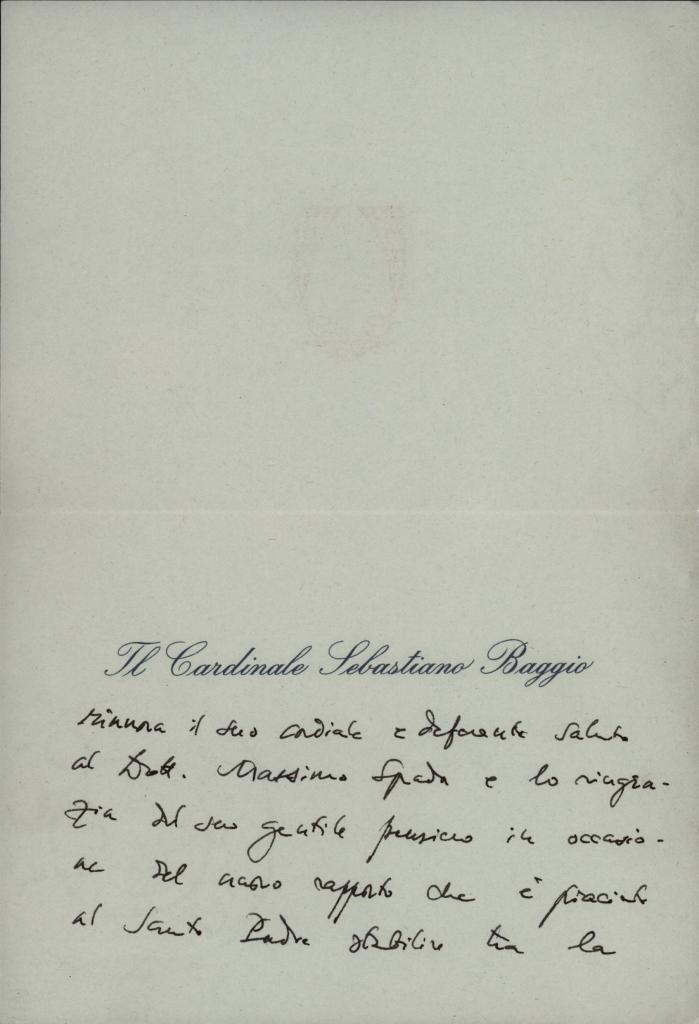 Il Cardinale Sebastiano Baggio
rinnova il suo cordiale e deferente saluto
al Dott. Massimo Spada e lo ringra-
zia del suo gentile pensiero in occasio-
ne del nuovo rapporto che è piaciuto
al Santo Padre stabilire tra la